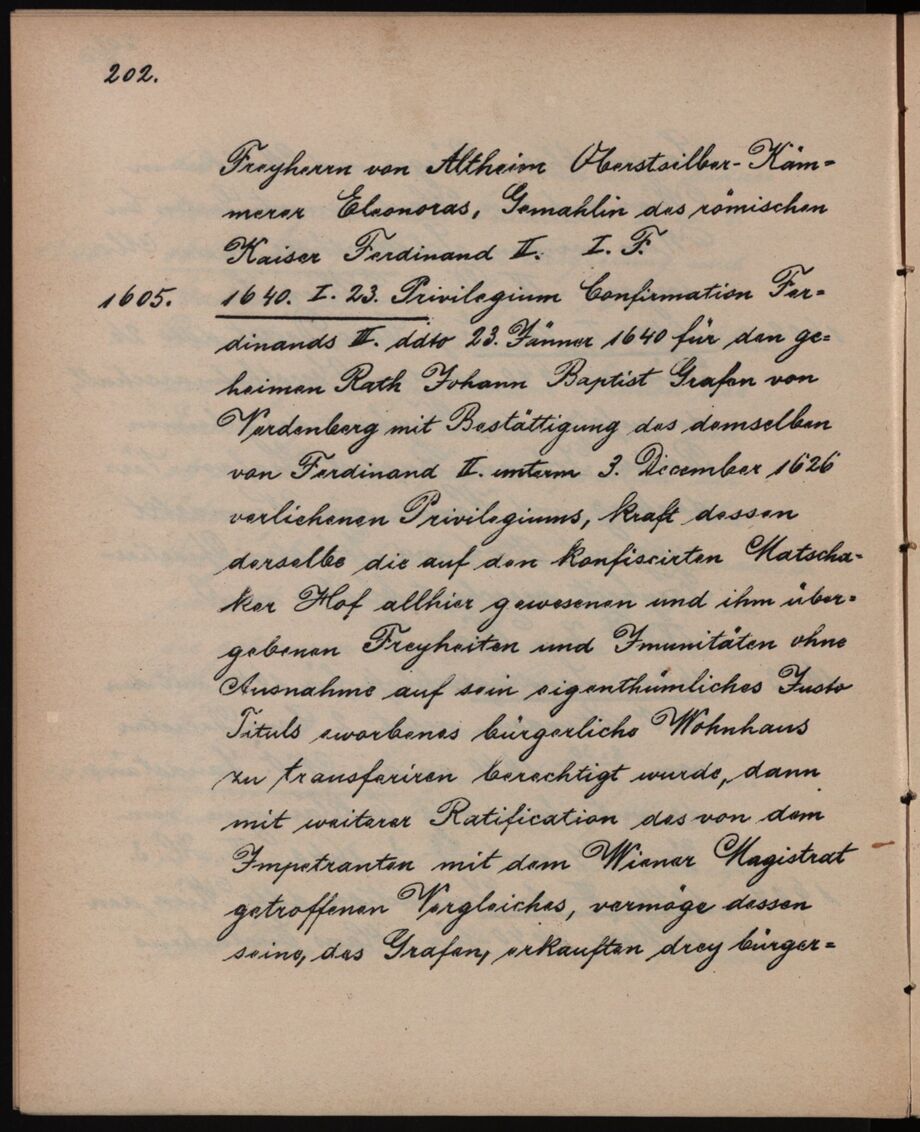 202.
Freyherrn von Altheim Oberstsilber-Käm=
merer Eleonoras, Gemahlin des römischen
Kaiser Ferdinand II. I. F.
1605. 1640. I. 23. Privilegium Confirmation Fer=
dinands III. ddto 23. Jänner 1640 für den ge=
heimen Rath Johann Baptist Grafen von
Verdenberg mit Bestättigung des demselben
von Ferdinand II. unterm 3. December 1626
verlichenen Privilegiums, kraft dessen
derselbe die auf den konfiscirten Matscha=
ker Hof allhier gewesenen und ihm über=
gebenen Freyheiten und Imunitäten ohne
Ausnahme auf sein eigenthümliches Justo
Tituls eworbenes bürgerliche Wohnhaus
zu transferiren berechtigt wurde, dann
mit weiterer Ratification des von dem
Impetranten mit dem Wiener Magistrat
getroffenen Vergleiches, vermöge dessen
seine, des Grafen, erkauften drey bürger=